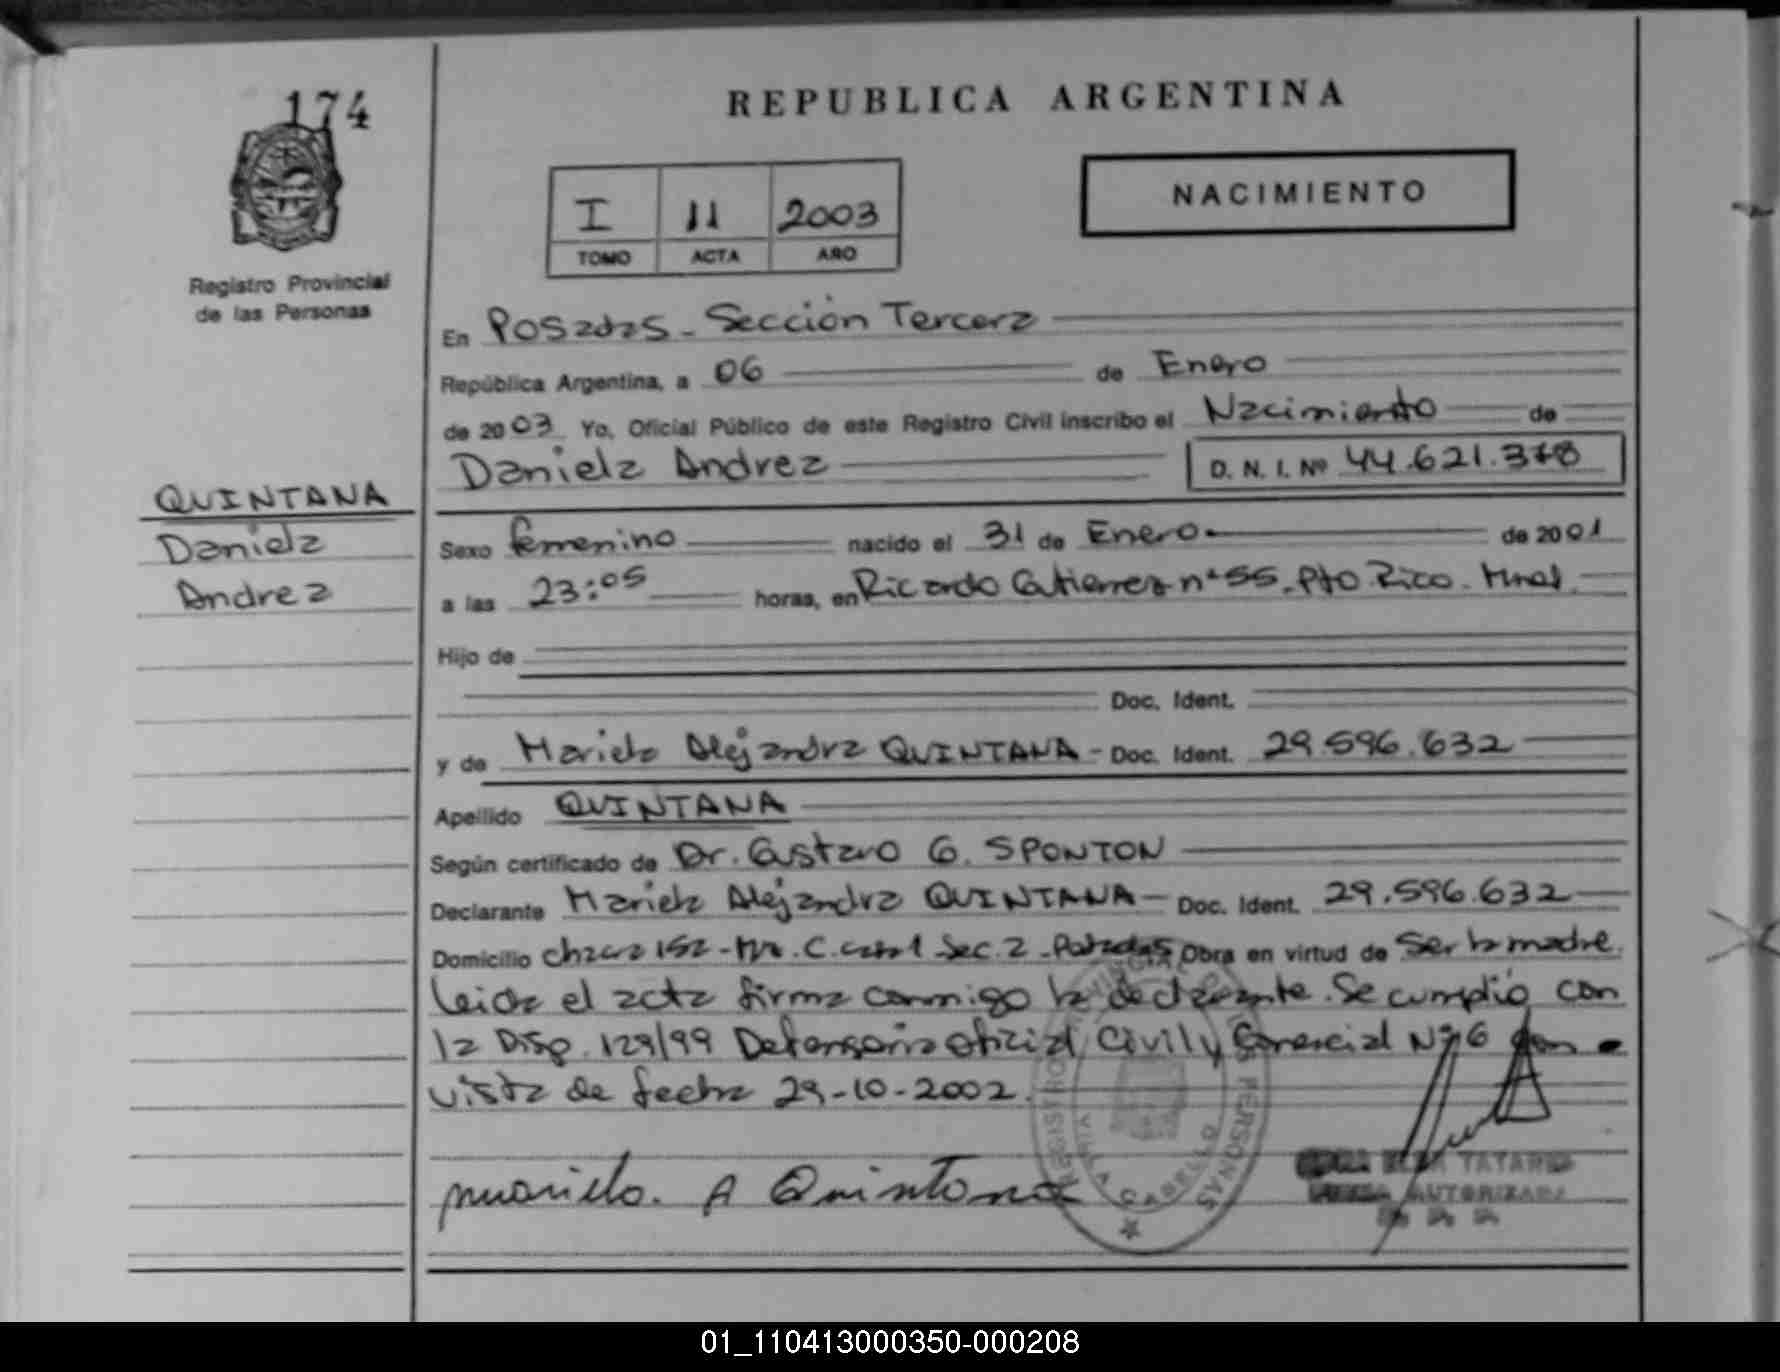 174
REPUBLICA ARGENTINA
I 11 2003
TOMO ACTA AÑO
NACIMIENTO
Registro Provincial
de las Personas
En Posadas - Sección Tercera
República Argentina, a 06 de Enero
de 2003 Yo, Oficial Público de este Registro Civil inscribo el Nacimiento de
Daniela Andrea D. N. I. Nº 44.621.378
QUINTANA
Daniela
Andrea
Sexo femenino nacido el 31 de Enero de 2001
a las 23:05 horas, en Ricardo Gutierrez nº 55 - Pto Rico - Mnes.
Hijo de
Doc. Ident.
y de Mariela Alejandra QUINTANA - Doc. Ident. 29.596.632
Apellido QUINTANA
Según certificado de Dr. Gustavo G. SPONTON
Declarante Mariela Alejandra QUINTANA - Doc. Ident. 29.596.632
Domicilio chacra 152 - C. Sec. 2 - Posadas Obra en virtud de Ser la madre.
leida el acta firma conmigo la declarante. Se cumplió con
la Disp. 129/99 Defensoria oficial Civil y Comercial Nº 6 con
vista de fecha 29-10-2002.
Mariela. A Quintana
REGISTRO PROVINCIAL DE LAS PERSONAS
CABELLO
AUTORIZADA
01_110413000350-000208